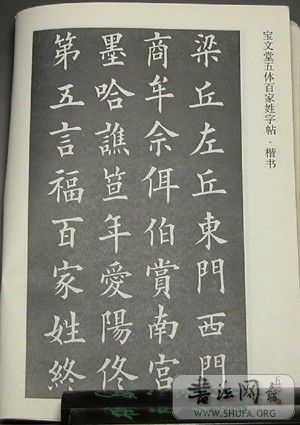 宝文堂五体百家姓字帖·楷书
梁丘左丘東門西門
商牟佘佴伯賞南宮
墨哈譙笪年愛陽佟
第五言福百家姓終
书法网
WWW.SHUFA.ORG